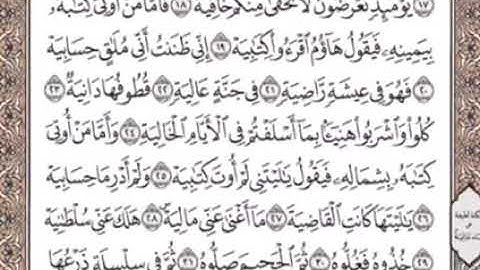 ١٧ يَوْمَئِذٍ تُعْرَضُونَ لَا تَخْفَىٰ مِنكُمْ خَافِيَةٌ ١٨ فَأَمَّا مَنْ أُوتِيَ كِتَابَهُ
بِيَمِينِهِ فَيَقُولُ هَاؤُمُ اقْرَءُوا كِتَابِيَهْ ١٩ إِنِّي ظَنَنتُ أَنِّي مُلَاقٍ حِسَابِيَهْ
٢٠ فَهُوَ فِي عِيشَةٍ رَّاضِيَةٍ ٢١ فِي جَنَّةٍ عَالِيَةٍ ٢٢ قُطُوفُهَا دَانِيَةٌ ٢٣
كُلُوا وَاشْرَبُوا هَنِيئًا بِمَا أَسْلَفْتُمْ فِي الْأَيَّامِ الْخَالِيَةِ ٢٤ وَأَمَّا مَنْ أُوتِيَ
كِتَابَهُ بِشِمَالِهِ فَيَقُولُ يَا لَيْتَنِي لَمْ أُوتَ كِتَابِيَهْ ٢٥ وَلَمْ أَدْرِ مَا حِسَابِيَهْ
٢٦ يَا لَيْتَهَا كَانَتِ الْقَاضِيَةَ ٢٧ مَا أَغْنَىٰ عَنِّي مَالِيَهْ ٢٨ هَلَكَ عَنِّي سُلْطَانِيَهْ
٢٩ خُذُوهُ فَغُلُّوهُ ٣٠ ثُمَّ الْجَحِيمَ صَلُّوهُ ٣١ ثُمَّ فِي سِلْسِلَةٍ ذَرْعُهَا